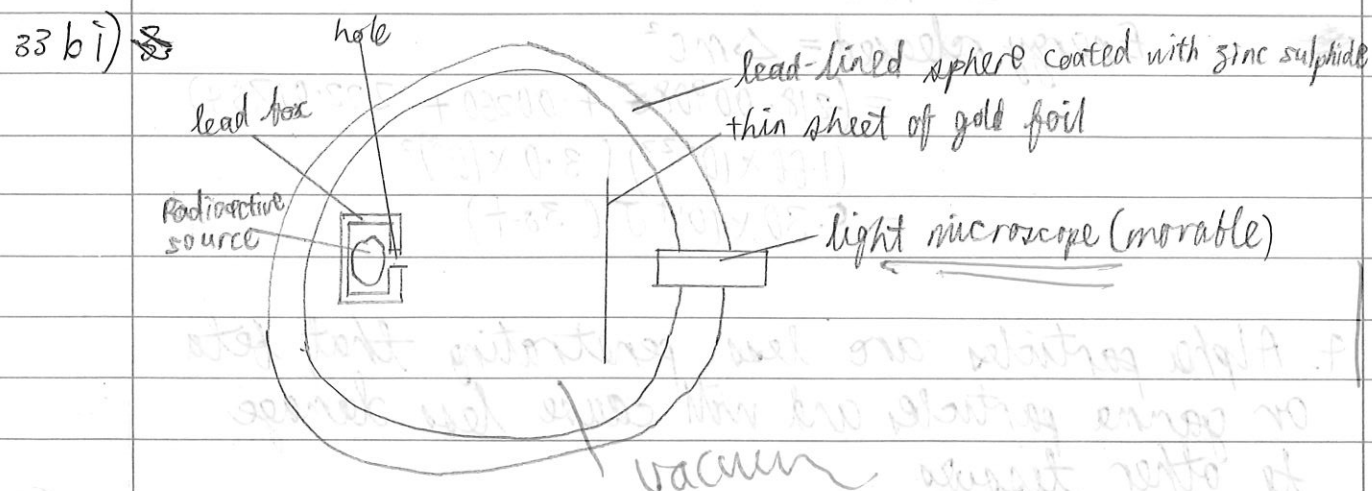 33 b i)
hole
lead-lined sphere coated with zinc sulphide
lead box
thin sheet of gold foil
Radioactive
source
light microscope (movable)
vacuum